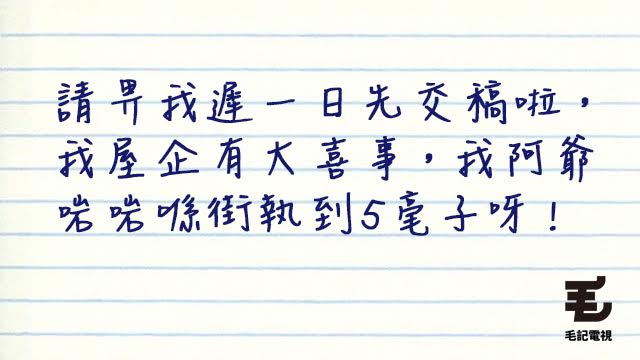 請畀我遲一日先交稿啦，
我屋企有大喜事，我阿爺
啱啱喺街執到5毫子呀！
毛
毛記電視